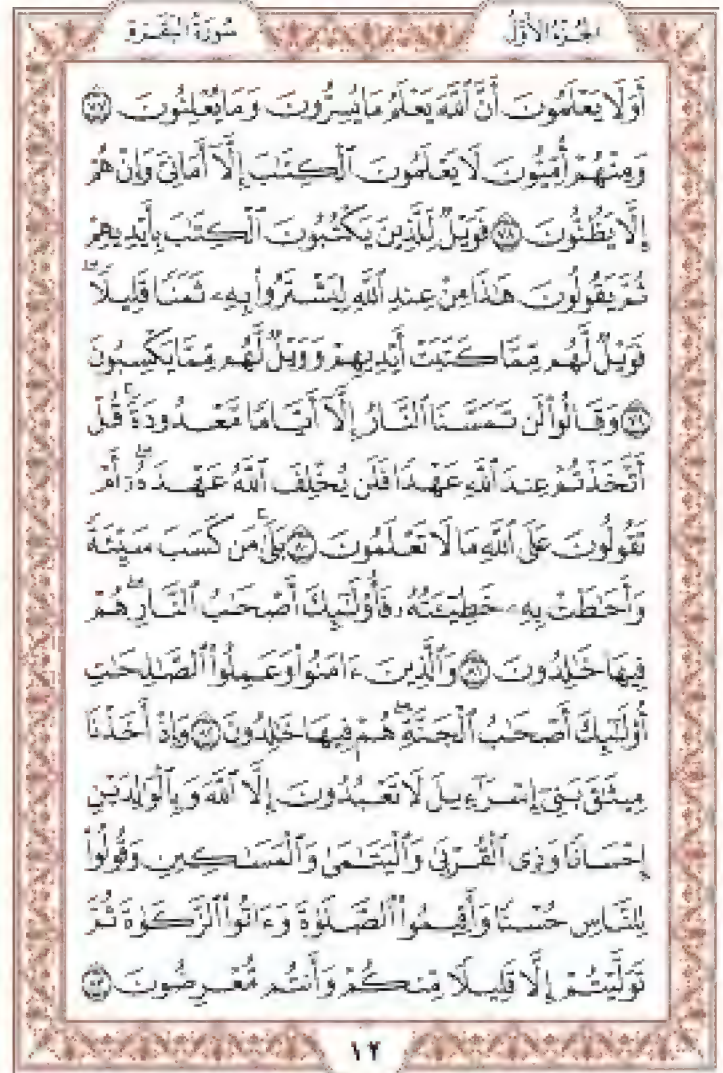 الجزء الأول
سورة البقرة
أَوَلَا يَعْلَمُونَ أَنَّ ٱللَّهَ يَعْلَمُ مَا يُسِرُّونَ وَمَا يُعْلِنُونَ ۝٧٧
وَمِنْهُمْ أُمِّيُّونَ لَا يَعْلَمُونَ ٱلْكِتَٰبَ إِلَّآ أَمَانِىَّ وَإِنْ هُمْ
إِلَّا يَظُنُّونَ ۝٧٨ فَوَيْلٌ لِّلَّذِينَ يَكْتُبُونَ ٱلْكِتَٰبَ بِأَيْدِيهِمْ
ثُمَّ يَقُولُونَ هَٰذَا مِنْ عِندِ ٱللَّهِ لِيَشْتَرُوا۟ بِهِۦ ثَمَنًا قَلِيلًا ۖ
فَوَيْلٌ لَّهُم مِّمَّا كَتَبَتْ أَيْدِيهِمْ وَوَيْلٌ لَّهُم مِّمَّا يَكْسِبُونَ
۝٧٩ وَقَالُوا۟ لَن تَمَسَّنَا ٱلنَّارُ إِلَّآ أَيَّامًا مَّعْدُودَةً ۚ قُلْ
أَتَّخَذْتُمْ عِندَ ٱللَّهِ عَهْدًا فَلَن يُخْلِفَ ٱللَّهُ عَهْدَهُۥٓ ۖ أَمْ
تَقُولُونَ عَلَى ٱللَّهِ مَا لَا تَعْلَمُونَ ۝٨٠ بَلَىٰ ۚ مَن كَسَبَ سَيِّئَةً
وَأَحَٰطَتْ بِهِۦ خَطِيٓـَٔتُهُۥ فَأُو۟لَٰٓئِكَ أَصْحَٰبُ ٱلنَّارِ ۖ هُمْ
فِيهَا خَٰلِدُونَ ۝٨١ وَٱلَّذِينَ ءَامَنُوا۟ وَعَمِلُوا۟ ٱلصَّٰلِحَٰتِ
أُو۟لَٰٓئِكَ أَصْحَٰبُ ٱلْجَنَّةِ ۖ هُمْ فِيهَا خَٰلِدُونَ ۝٨٢ وَإِذْ أَخَذْنَا
مِيثَٰقَ بَنِىٓ إِسْرَٰٓءِيلَ لَا تَعْبُدُونَ إِلَّا ٱللَّهَ وَبِٱلْوَٰلِدَيْنِ
إِحْسَانًا وَذِى ٱلْقُرْبَىٰ وَٱلْيَتَٰمَىٰ وَٱلْمَسَٰكِينِ وَقُولُوا۟
لِلنَّاسِ حُسْنًا وَأَقِيمُوا۟ ٱلصَّلَوٰةَ وَءَاتُوا۟ ٱلزَّكَوٰةَ ثُمَّ
تَوَلَّيْتُمْ إِلَّا قَلِيلًا مِّنكُمْ وَأَنتُم مُّعْرِضُونَ ۝٨٣
١٢